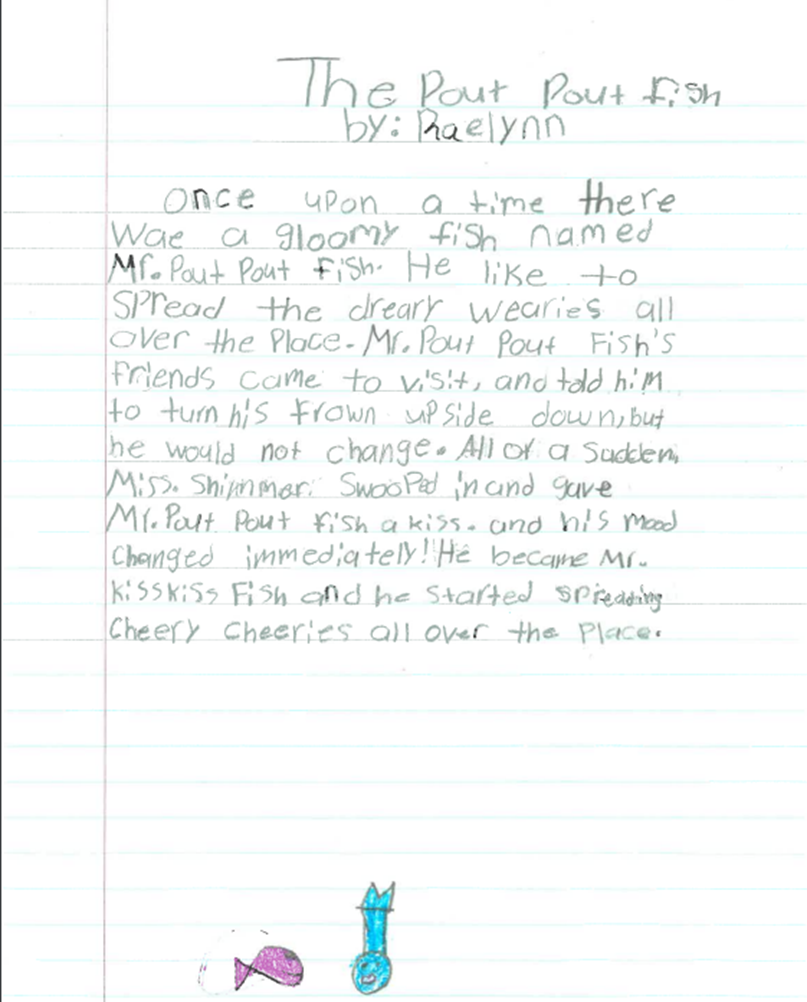 The Pout Pout fish
by: Raelynn
Once upon a time there
Wae a gloomy fish named
Mr. Pout Pout Fish. He like to
spread the dreary wearies all
over the Place. Mr. Pout Pout Fish's
friends came to visit, and told him
to turn his frown upside down, but
he would not change. All of a Sudden,
Miss. Shimmer. Swooped in and gave
Mr. Pout Pout fish a kiss. and his mood
Changed immediately! He became Mr.
kisskiss Fish and he started spreading
Cheery Cheeries all over the Place.